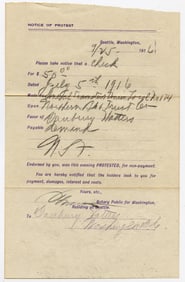 NOTICE OF PROTEST
Seattle, Washington,
7/25 191 6
Please take notice that a Check
For $ 50.00
Dated July 5th 1916
By
Upon Northern Bk & Trust Co
Favor of Danbury Hatters
Payable demand
N.S.F.
Endorsed by you, was this evening PROTESTED, for non-payment.
You are hereby notified that the holders look to you for
payment, damages, interest and costs.
Yours, etc.,
Notary Public for Washington,
Residing at Seattle.
To Danbury Hatters